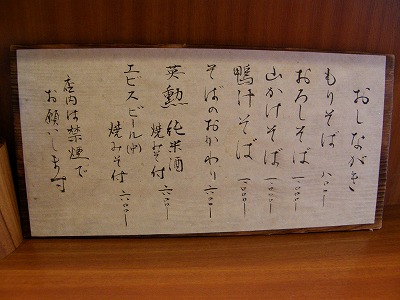 おしながき
もりそば 八〇〇
おろしそば 一、〇〇〇
山かけそば 一、〇〇〇
鴨汁そば
そばのおかわり 六〇〇
英勲 純米酒
焼みそ付 六〇〇
エビスビール(中)
焼みそ付 六〇〇
店内は禁煙で
お願いします